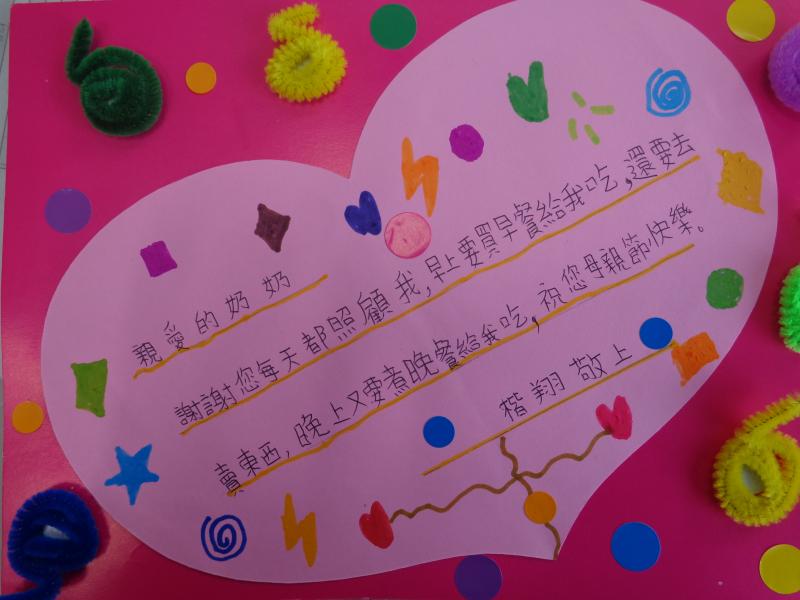 親愛的奶奶
謝謝您每天都照顧我,早上要買早餐給我吃,還要去
賣東西,晚上又要煮晚餐給我吃,祝您母親節快樂。
楷翔敬上